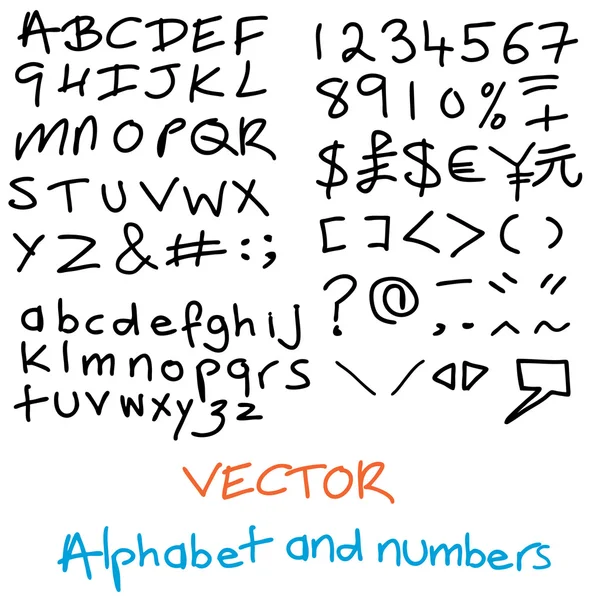 ABCDEF
9HIJKL
MNOPQR
STUVWX
YZ&#:;
abcdefghij
klmnopqrs
tuvwxy3z
1234567
8910%=+
$£$€¥元
[]<>()
?@—〝〃,.^~
\/◁▷
VECTOR
Alphabet and numbers